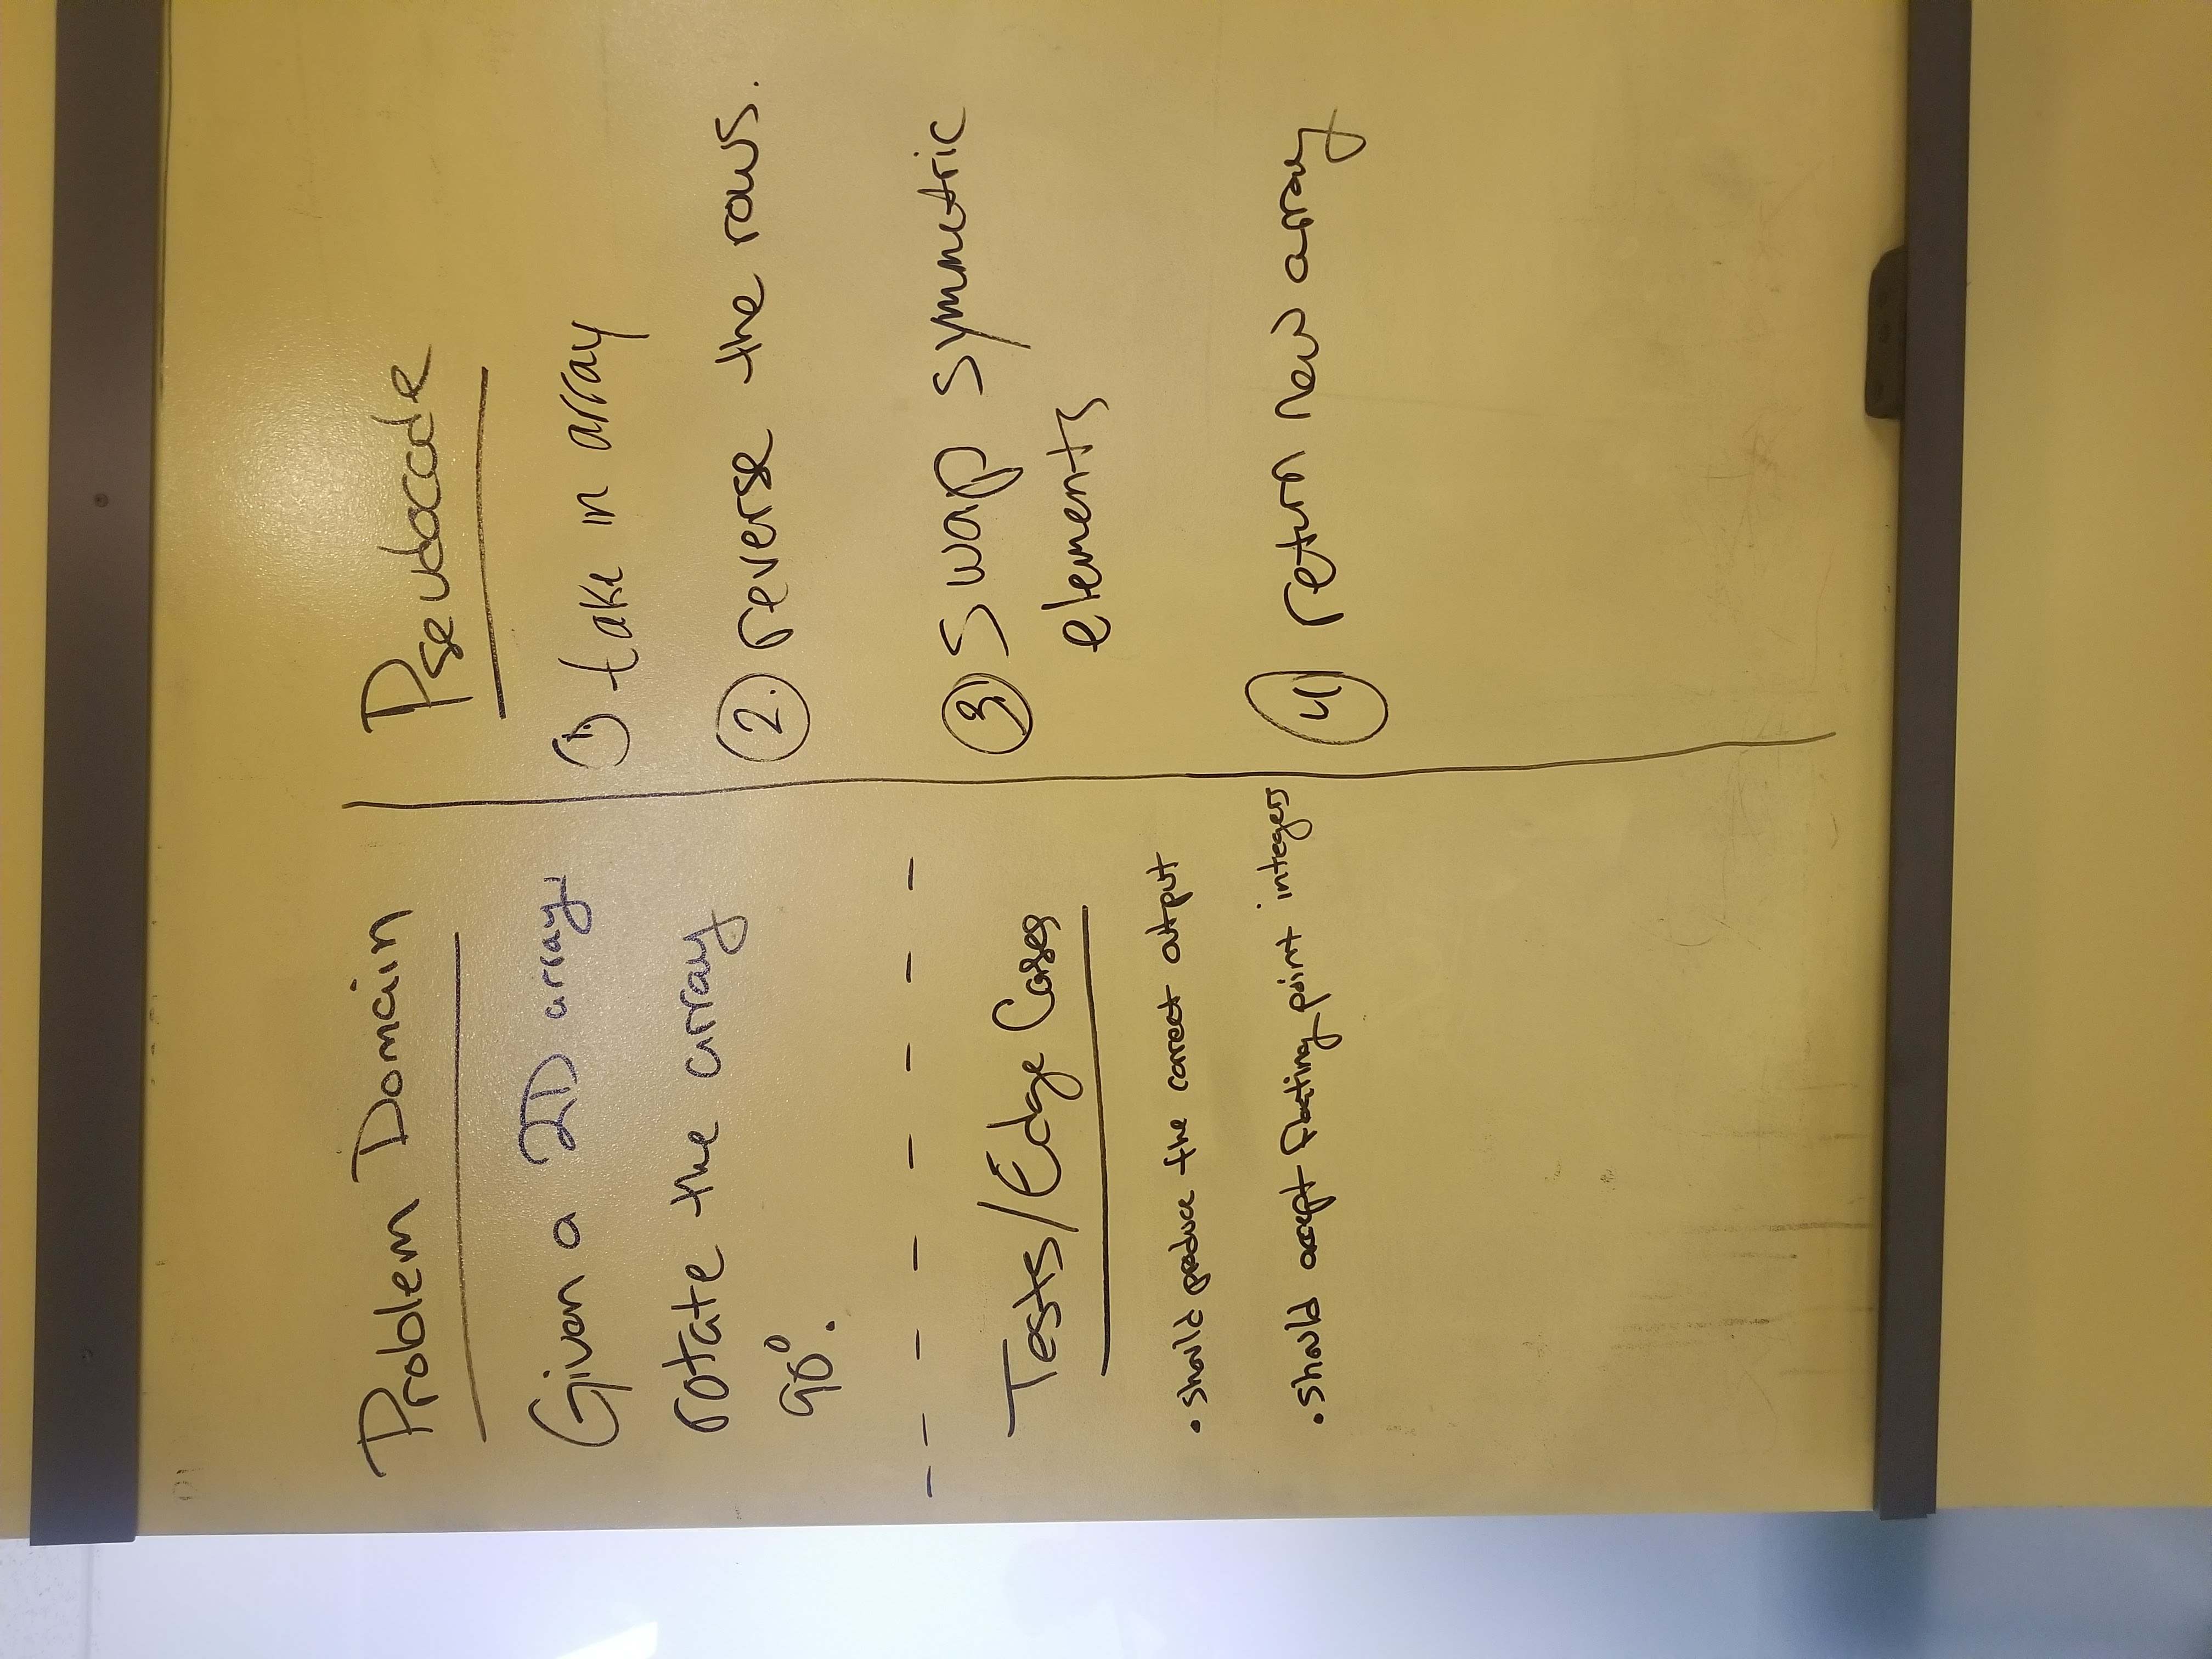 Problem Domain
Given a 2D array,
rotate the array
90°.
Tests/Edge Cases
• should produce the correct output
• should accept floating point integers
Pseudocode
1. take in array
2. reverse the rows.
3. swap symmetric
elements
4 return new array